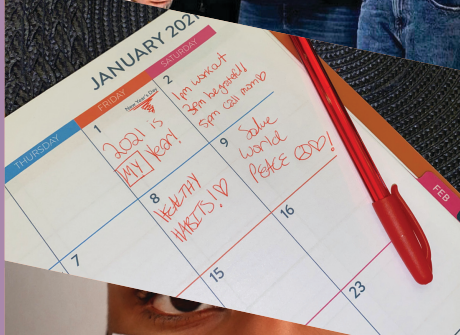 JANUARY 2021
THURSDAY
FRIDAY
SATURDAY
1
New Year's Day
2021 is
MY Year!
2
1pm workout
3pm be grateful
5pm call mom
7
8
HEALTHY
HABITS!
9
Solve
World
PEACE !
15
16
23
FEB